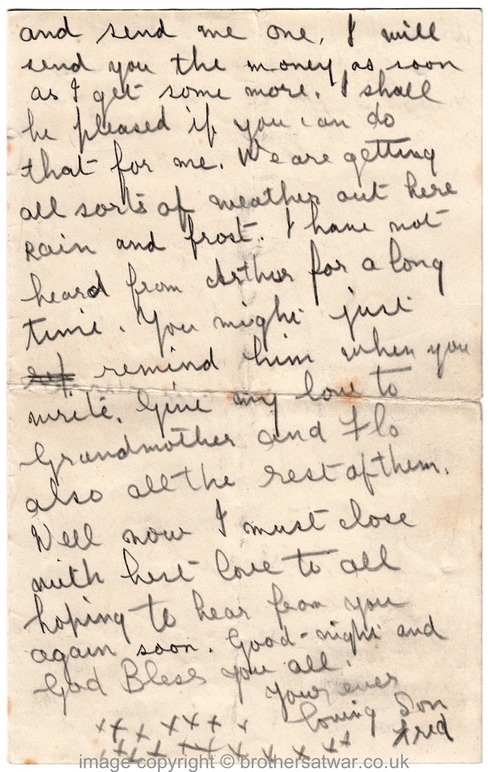 and send me one. I will
send you the money as soon
as I get some more. I shall
be pleased if you can do
that for me. We are getting
all sorts of weather out here
Rain and frost. I have not
heard from Arthur for a long
time. You might just
remind him when you
write. Give my love to
Grandmother and Flo
also all the rest of them.
Well now I must close
with best love to all
hoping to hear from you
again soon. Good-night and
God Bless you all.
Your ever
loving Son
Fred
x x x x x x x x
x x x x x x x x x x x
image copyright © brothersatwar.co.uk